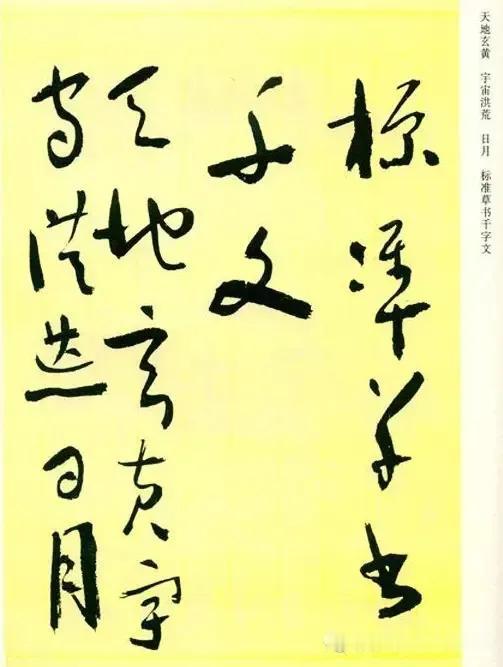 天地玄黄 宇宙洪荒 日月 标准草书千字文
標準草書
千文
天地玄黄宇
宙洪荒日月